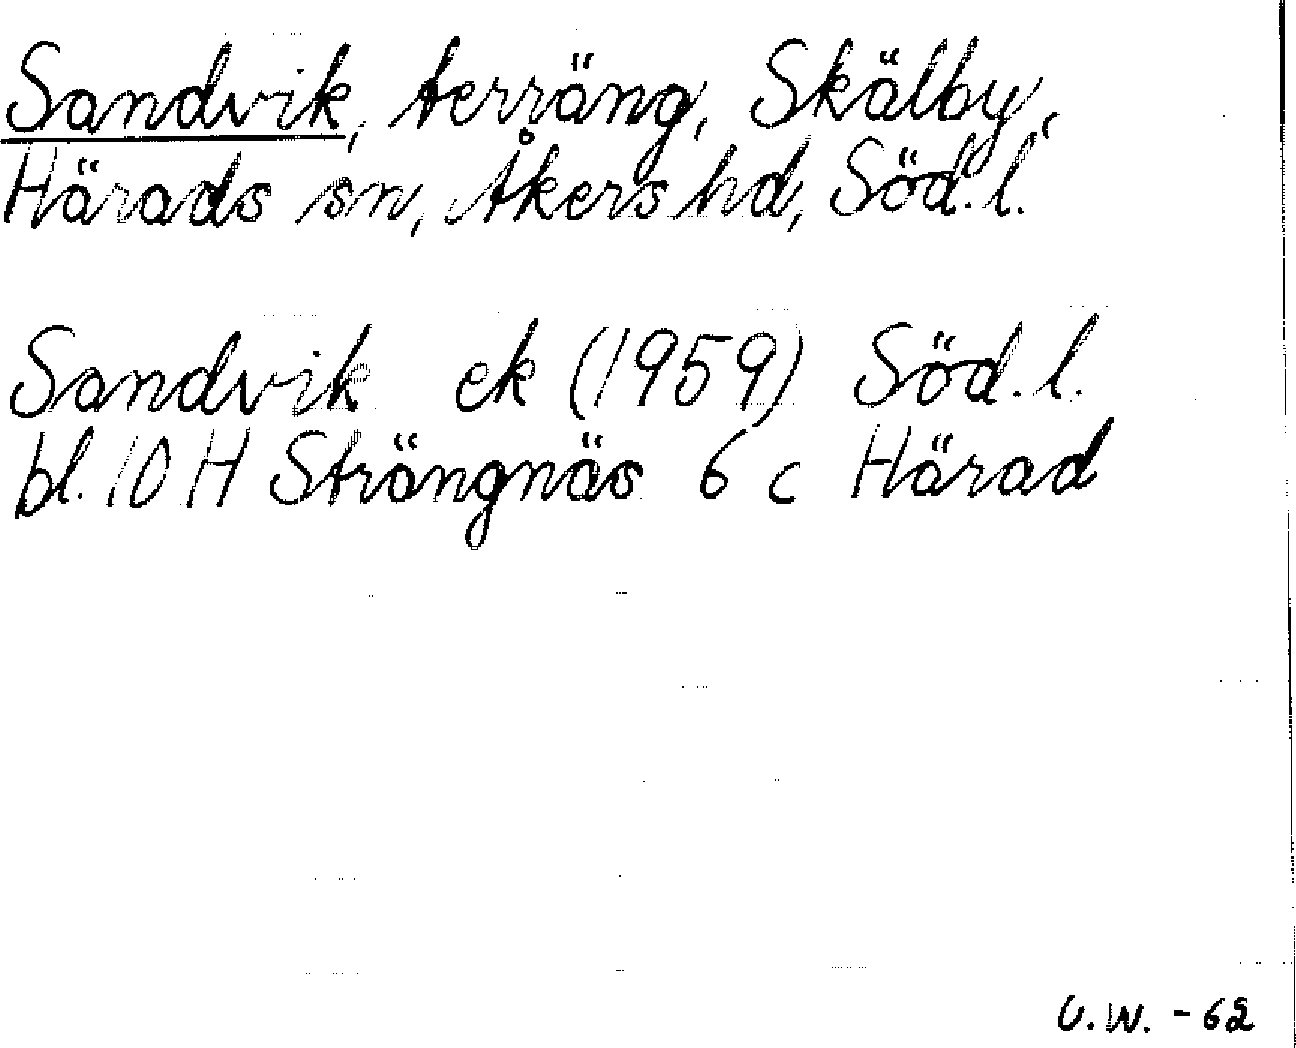 Sandvik, terräng, Skälby,
Härads sn, Åkers hd, Söd.l.
Sandvik ek (1959) Söd.l.
bl. 10 H Strängnäs 6 c Härad
U.W. - 62